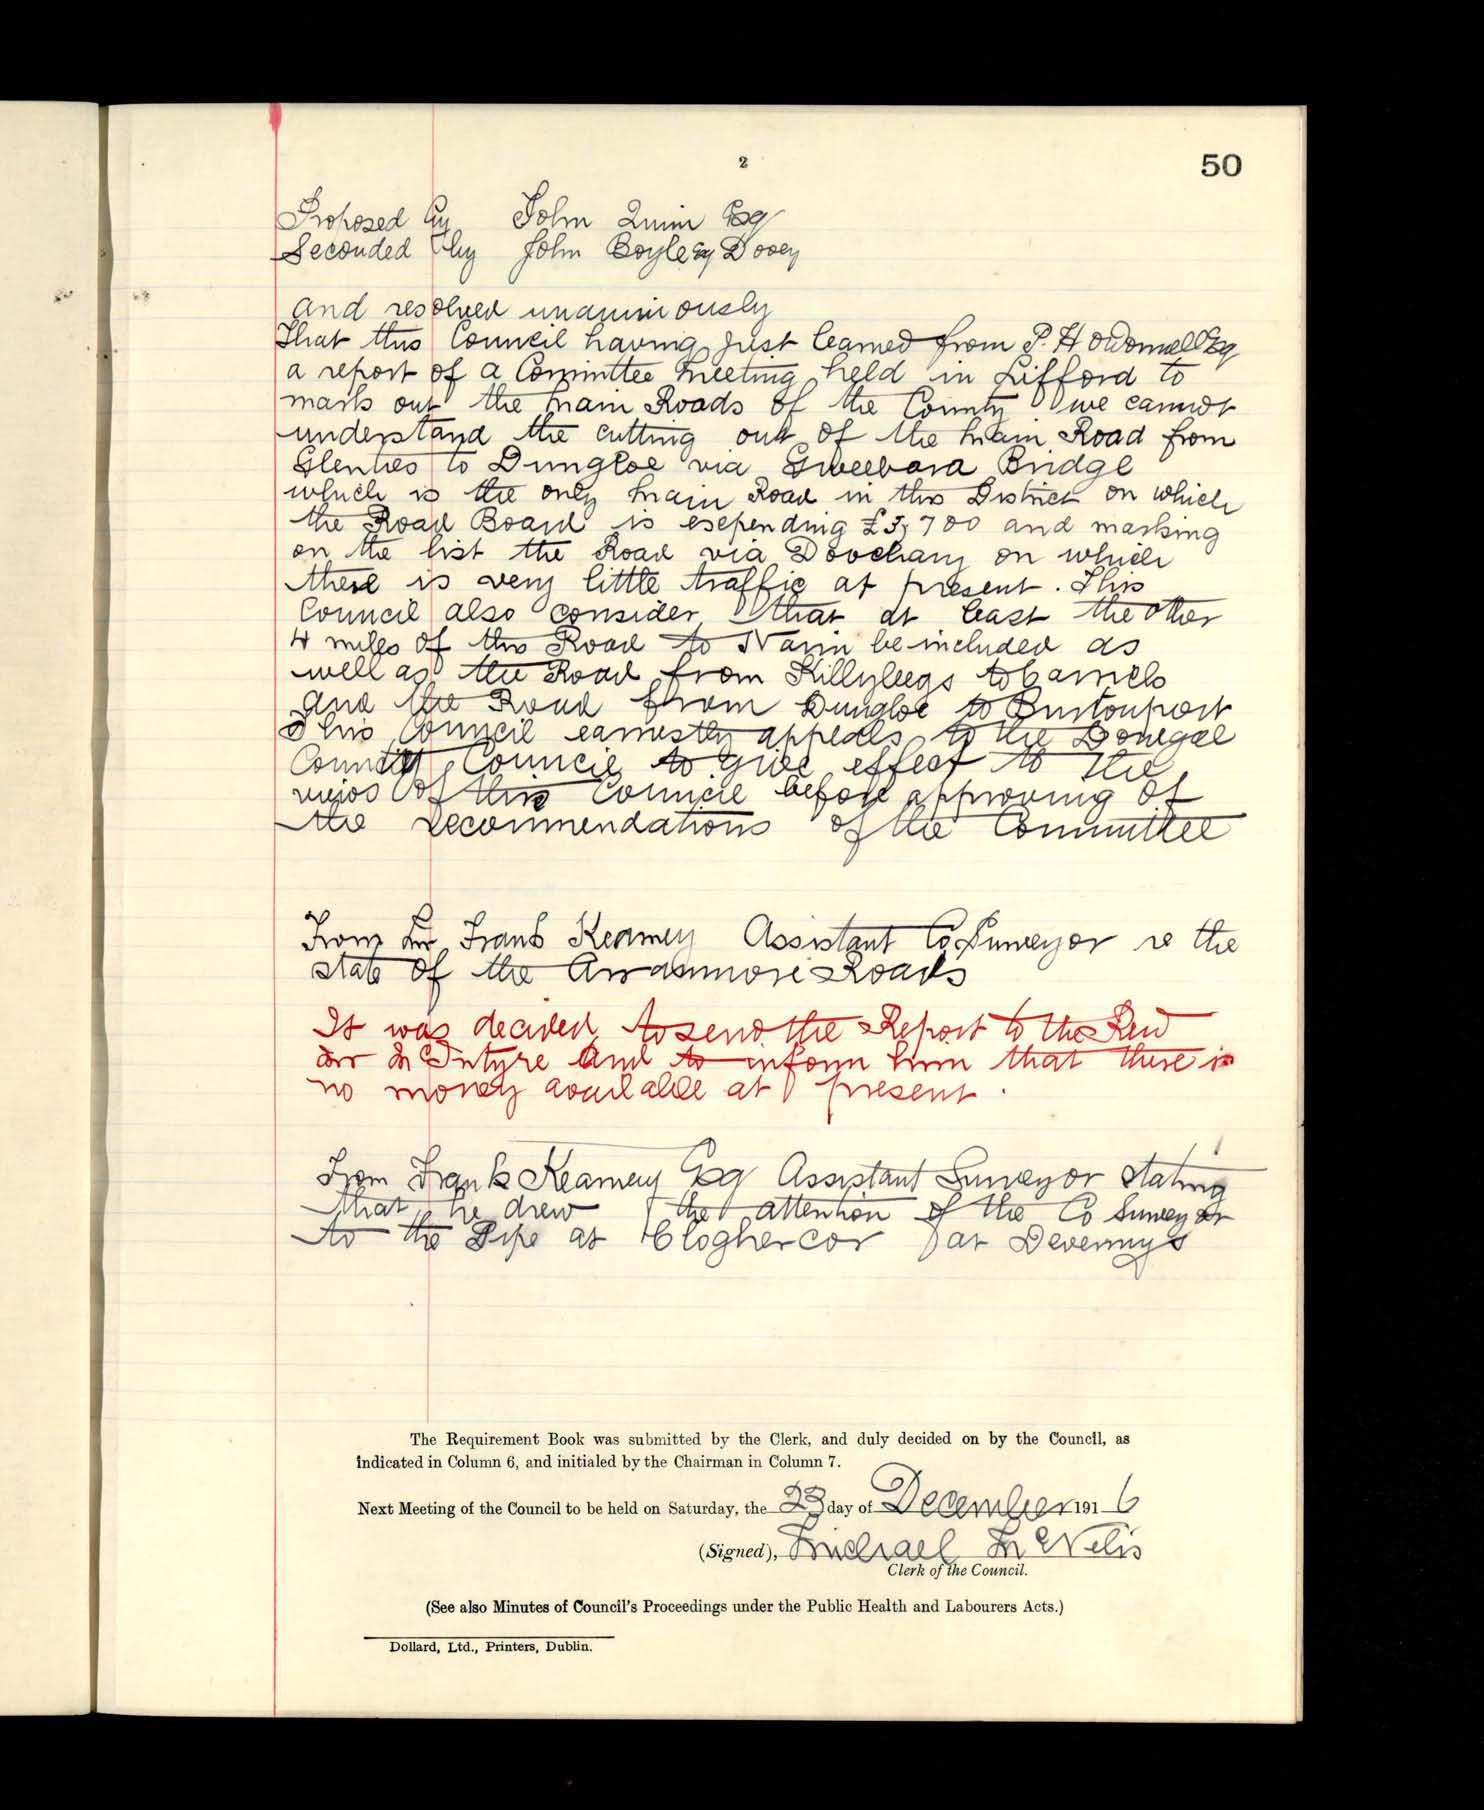 2
50
Proposed by John Quinn Esq
Seconded by John Boyle Esq Dooey
and resolved unanimously
That this Council having just learned from P. H O'Donnell Esq
a report of a Committee Meeting held in Lifford to
mark out the Main Roads of the County we cannot
understand the cutting out of the Main Road from
Glenties to Dungloe via Gweebara Bridge
which is the only Main Road in this District on which
the Road Board is expending £3,700 and marking
on the list the Road via Doochary on which
there is very little traffic at present. This
Council also consider that at least the other
4 miles of this Road to Narin be included as
well as the Road from Killybegs to Carrick
and the Road from Dungloe to Burtonport
This Council earnestly appeals to the Donegal
County Council to give effect to the
views of this Council before approving of
the recommendations of the Committee
From Mr Frank Kearney Assistant Co Surveyor re the
state of the Arranmore Roads
It was decided to send the Report to the Revd
Mr McIntyre and to inform him that there is
no money available at present.
From Frank Kearney Esq Assistant Surveyor stating
that he drew the attention of the Co Surveyor
to the Pipe at Cloghercor at Devennys
The Requirement Book was submitted by the Clerk, and duly decided on by the Council, as
indicated in Column 6, and initialed by the Chairman in Column 7.
Next Meeting of the Council to be held on Saturday, the 23 day of December 1916
(Signed), Michael McNelis
Clerk of the Council.
(See also Minutes of Council's Proceedings under the Public Health and Labourers Acts.)
Dollard, Ltd., Printers, Dublin.